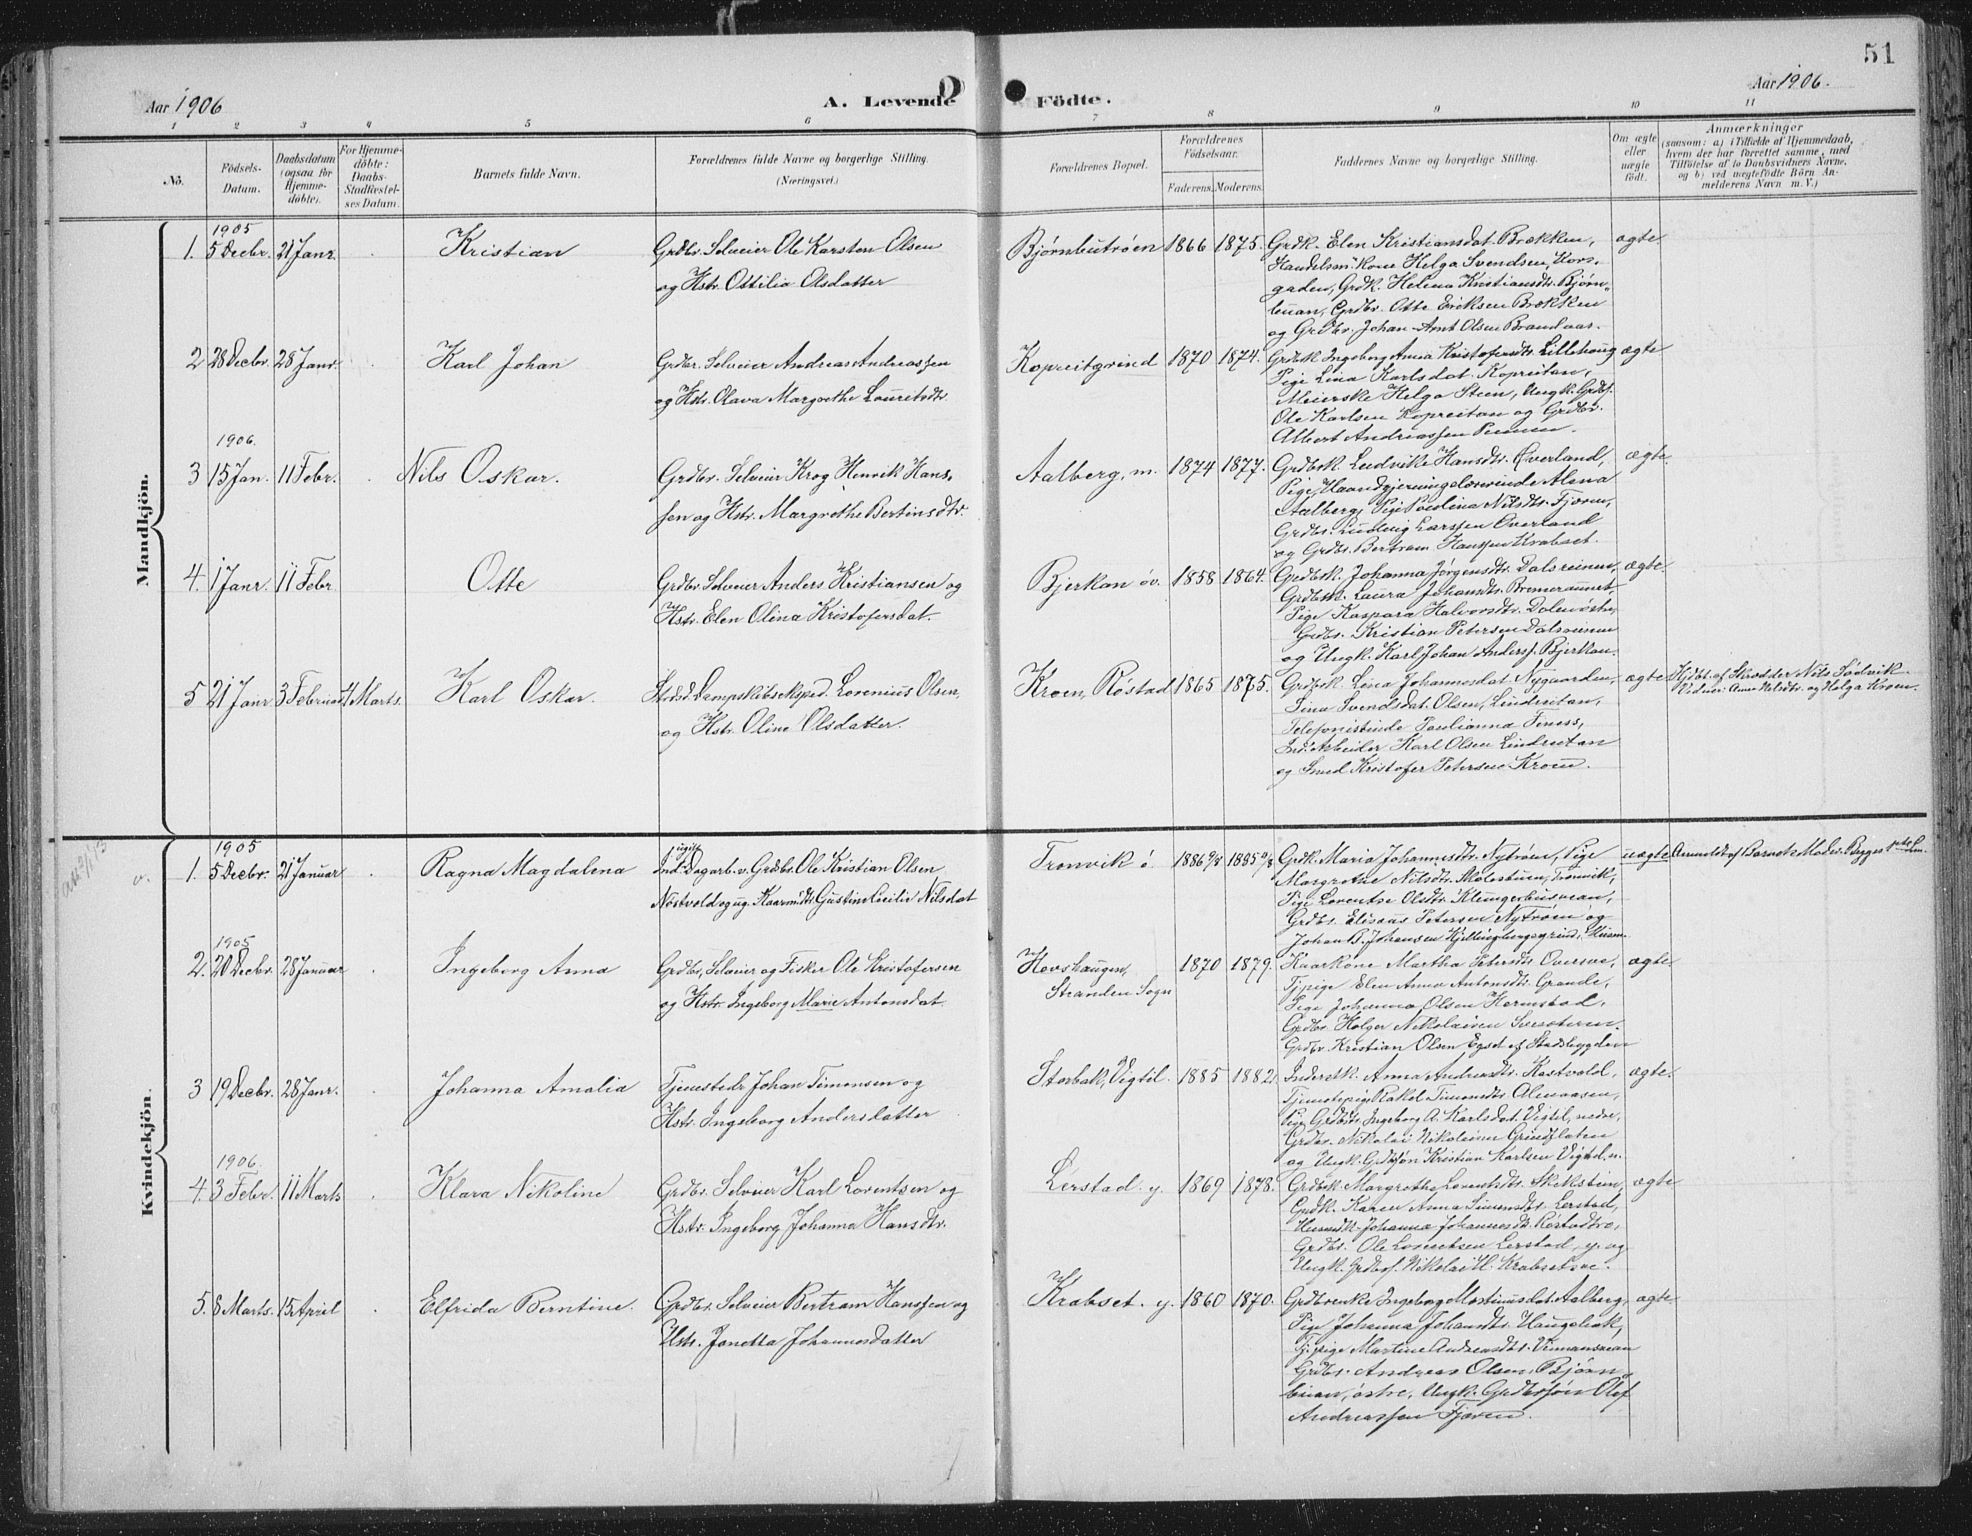 51
Aar 1906
A. Levende
Födte.
Aar 1906.
1 2 3 4 5 6 7 8 9 10 11
No.
Födsels-
Datum.
Daabsdatum
(ogsaa for
Hjemme-
döbte).
For Hjemme-
döbte:
Daabs-
Stadfæstel-
ses Datum.
Barnets fulde Navn.
Forældrenes fulde Navne og borgerlige Stilling.
(Næringsvei.)
Forældrenes Bopæl.
Forældrenes
Födselsaar.
Faderens. Moderens.
Faddernes Navne og borgerlige Stilling.
Om ægte
eller
uægte
født.
Anmærkninger
(saasom: a) i Tilfælde af Hjemmedaab,
hvem der har forrettet samme, med
Tilföielse af to Daabsvidners Navne,
og b) ved uægtefödte Börn An-
melderens Navn m. V.)
Mandkjön.
1905
1. 5 Decbr. 21 Janr. Kristian
Grdbr. Selveier Ole Karsten Olsen
og Hstr. Ottilia Olsdatter
Bjørnbutrøen 1866 1875.
Grdk. Elen Kristiansdat. Brækken,
Handelsm. kone Helga Svendsen, Kors-
gaden, Grdk. Helena Kristiansdtr. Bjørn-
buan, Grdbr. Otte Eriksen Brækken
og Grdbr. Johan Arnt Olsen Brandaas.
ægte
2 28 Decbr. 28 Janr. Karl Johan
Grdbr. Selveier Andreas Andreassen
og Hstr. Olava Margrethe Lauritsdtr.
Kopreitgrind 1870 1874.
Grdbk. Ingeborg Anna Kristofersdtr. Lillehaug
Pige Lina Karlsdat. Kopreitan,
Meierske Helga Steen, Ungk. Grdbs.
Ole Karlsen Kopreitan og Grdbr.
Albert Andreassen
ægte
1906.
3 15 Jan. 11 Febr. Nils Oskar.
Grdbr. Selveier Krog Henrik Hans-
sen og Hstr. Margrethe Bertinsdtr.
Aalberg, m. 1874 1877.
Grdbrk. Ludvike Hansdtr. Overland,
Pige, Haandgjerningslærerinde Alena
Aalberg, Pige Paulina Nilsdtr. Fjæren,
Grdbr. Ludvig Larssen Overland
og Grdbr. Bertram Hanssen Krabset.
ægte
4. 1 Janr. 11 Febr. Otte
Grdbr. Selveier Anders Kristiansen og
Hstr. Elen Olina Kristofersdat.
Bjerkan øv. 1858 1864.
Grdbrk. Johanna Jørgensdtr. Dalsveimen,
Grdbrk. Laura Johansdtr.
Pige Kaspara Halvorsdtr.
Grdbr. Kristian Petersen
og Ungk. Karl Johan Anders. Bjerkan.
ægte
5 21 Janr. 3 Februar 4 Marts. Karl Oskar.
Dampskibseksped. Lorenius Olsen,
og Hstr. Oline Olsdatter.
Kroen, Røstad 1865 1875.
Grdbrk. Lina Johannesdat. Nygaarden,
Lina Svendsdat. Olsen, Lindreitan,
Telefonistinde Juulianna Finess,
Ind. Arbeider Karl Olsen Lindreitan
og Smed Kristofer Petersen Kroen.
ægte
Hjdbt. af Skrædder Nils Sødvik.
Vidner: Anne Nilsdtr. og Helga Kroen.
Kvindekjön.
1905
1. 5 Decbr. 21 Januar Ragna Magdalena
Ind. Dagarb. v. Grdbr. Ole Kristian Olsen
Nostvold og ug. Kaarmdtr. Gustine Cecilie Nilsdat
Tronvik ö 1886 1885
Grdk. Maria Johannesdtr. Nytrøen, Pige
Margrethe Nilsdtr. Molestuen, Tronvik,
Pige Lorentse Olsdtr. Klungerhusmoan,
Grdbr. Eliseus Petersen Nytrøen og
Johan B. Johansen Hjellingbergsgrind, Husm.
uægte
Anmeldt af Barnets Moder.
1905
2. 20 Decbr. 28 Januar Ingeborg Anna
Grdbr. Selveier og Fisker Ole Kristofersen
og Hstr. Ingeborg Marie Antonsdat.
Hovshaugen,
Stranden Sogn
1870 1879.
Kaarkone Martha Petersdtr. Overøve,
Tjpige Elen Anna Antonsdtr. Grande,
Pige Johanna Olsen Hermstad,
Grdbr. Holger Nikolaisen
Grdbr. Kristian Olsen Egset af Stadsbygden
ægte
3 19 Decbr. 28 Janr. Johanna Amalia
Tjenestedr. Johan Timonsen og
Hstr. Ingeborg Andersdatter
Storbak, Vigtil. 1885 1882.
Inderstk. Anna Andersdtr. Kastvold,
Tjenestepige Rakel Timonsdtr. Alenaasen,
Pige Grdbdtr. Ingeborg A. Karlsdat. Vigtil, nedre,
Grdbr. Nikolai Nikolaisen Grindflaten
og Ungk. Grdbsøn Kristian Karlsen Vigtil, n.
ægte
1906.
4. 3 Febr. 11 Marts Klara Nikoline
Grdbr. Selveier Karl Lorentsen og
Hstr. Ingeborg Johanna Hansdtr.
Lerstad. y. 1869 1878.
Grdbrk. Margrethe Lorentsdtr.
Grdk. Karen Anna Simonsdtr. Lerstad,
Husmdk. Johanna Johannesdtr. Røstadbro,
Grdbr. Ole Lorentsen Lerstad, y. og
Ungk. Grdbsf. Nikolai H. Krabsetsve.
ægte
5. 8 Marts. 15 April Elfrida Berntine.
Grdbr. Selveier Bertram Hanssen og
Hstr. Janetta Johannesdatter
Krabset. y. 1860 1870.
Grdbrenke Ingeborg Martinusdat. Aalberg,
Pige Johanna Johansdtr. Haugebak,
Tj.pige Martine Andreasdtr. Vinnansmoan
Grdbr. Andreas Olsen, Bjørn-
buan, østre, Ungk. Grdbrsøn Olaf
Andreassen Fjæren.
ægte